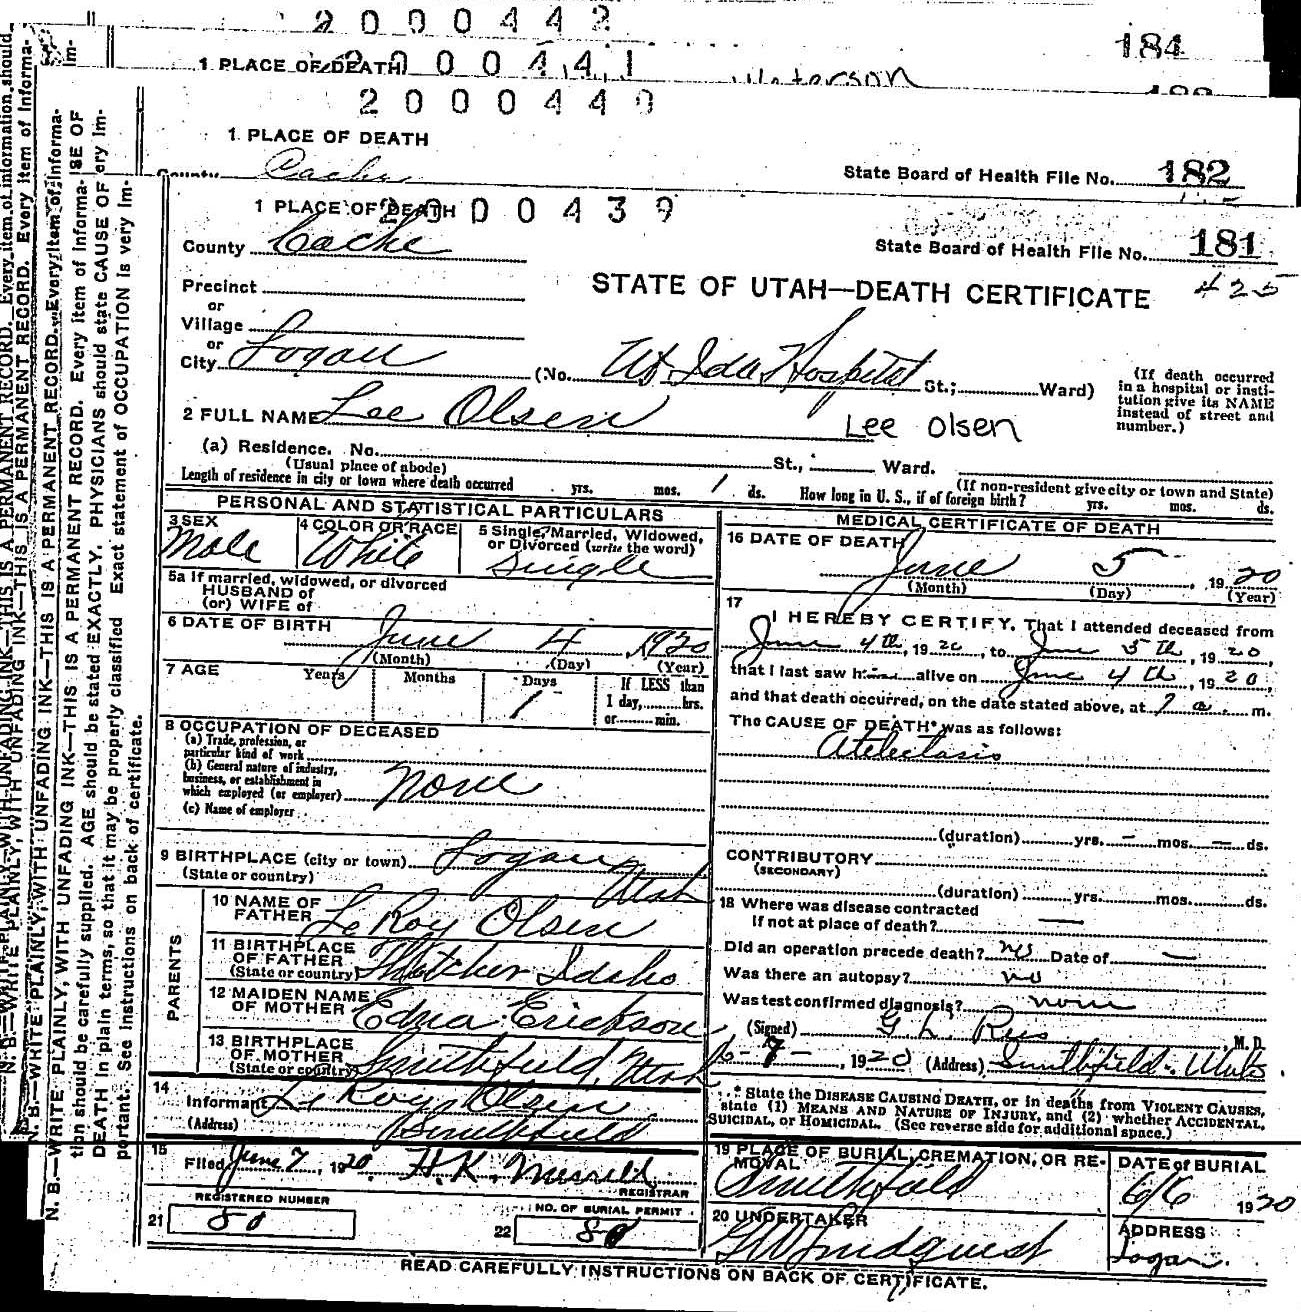 2000442
184
1 PLACE OF DEATH 2000441
2000440
1 PLACE OF DEATH
County Cache
State Board of Health File No. 182
2000439
1 PLACE OF DEATH
County Cache
State Board of Health File No. 181
STATE OF UTAH—DEATH CERTIFICATE 425
Precinct
or
Village
or
City Logan (No. Ut. Ida Hospital St.; Ward)
(If death occurred in a hospital or insti-
tution give its NAME
instead of street and
number.)
2 FULL NAME Lee Olsen Lee Olsen
(a) Residence. No. St., Ward.
(Usual place of abode) (If non-resident give city or town and State)
Length of residence in city or town where death occurred yrs. mos. 1 ds. How long in U. S., if of foreign birth? yrs. mos. ds.
PERSONAL AND STATISTICAL PARTICULARS
3 SEX Male
4 COLOR OR RACE White
5 Single, Married, Widowed,
or Divorced (write the word)
Single
5a If married, widowed, or divorced
HUSBAND of
(or) WIFE of
6 DATE OF BIRTH June 4 1920
(Month) (Day) (Year)
7 AGE Years Months Days 1 If LESS than
1 day, hrs.
or min.
8 OCCUPATION OF DECEASED
(a) Trade, profession, or
particular kind of work
(b) General nature of industry,
business, or establishment in
which employed (or employer) None
(c) Name of employer
9 BIRTHPLACE (city or town) Logan
(State or country) Utah
PARENTS
10 NAME OF
FATHER LeRoy Olsen
11 BIRTHPLACE
OF FATHER
(State or country) Thatcher Idaho
12 MAIDEN NAME
OF MOTHER Edna Erickson
13 BIRTHPLACE
OF MOTHER
(State or country) Smithfield, Utah
14
Informant LeRoy Olsen
(Address) Smithfield
15
Filed June 7, 1920. H. K. Merrill
REGISTRAR
REGISTERED NUMBER
21 80
NO. OF BURIAL PERMIT
22 80
MEDICAL CERTIFICATE OF DEATH
16 DATE OF DEATH June 5, 1920
(Month) (Day) (Year)
17
I HEREBY CERTIFY, That I attended deceased from
June 4th, 1920, to June 5th, 1920,
that I last saw him alive on June 4th, 1920,
and that death occurred, on the date stated above, at 7 a. m.
The CAUSE OF DEATH* was as follows:
Atelectasis
(duration) yrs. — mos. — ds.
CONTRIBUTORY
(SECONDARY)
(duration) yrs. mos. ds.
18 Where was disease contracted
if not at place of death? —
Did an operation precede death? no Date of —
Was there an autopsy? no
Was test confirmed diagnosis? none
(Signed) G. L. Rees, M. D.
6-7-, 1920 (Address) Smithfield - Utah.
* State the DISEASE CAUSING DEATH, or in deaths from VIOLENT CAUSES,
state (1) MEANS AND NATURE OF INJURY, and (2) whether ACCIDENTAL,
SUICIDAL, OR HOMICIDAL. (See reverse side for additional space.)
19 PLACE OF BURIAL, CREMATION, OR RE-
MOVAL Smithfield
DATE of BURIAL
6/6 1920
20 UNDERTAKER
G W Lindquist
ADDRESS
Logan.
READ CAREFULLY INSTRUCTIONS ON BACK OF CERTIFICATE.
N. B.—WRITE PLAINLY, WITH UNFADING INK—THIS IS A PERMANENT RECORD. Every item of informa-
tion should be carefully supplied. AGE should be stated EXACTLY. PHYSICIANS should state CAUSE OF
DEATH in plain terms, so that it may be properly classified Exact statement of OCCUPATION is very Im-
portant. See instructions on back of certificate.